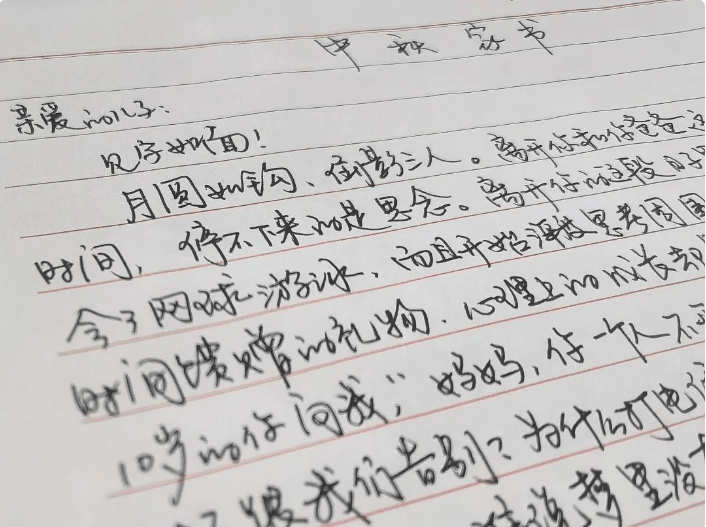 中秋家书
亲爱的儿子：
见字如面！
月圆如钩、倒影三人。离开你和你爸爸这
时间，停不下来的是思念。离开你的这段日子里
会了网球、游泳、而且开始深度思考周围
时间馈赠的礼物，心理上的成长却
10岁的你问我：“妈妈，你一个人不
我们告别？为什么打电话
梦里没